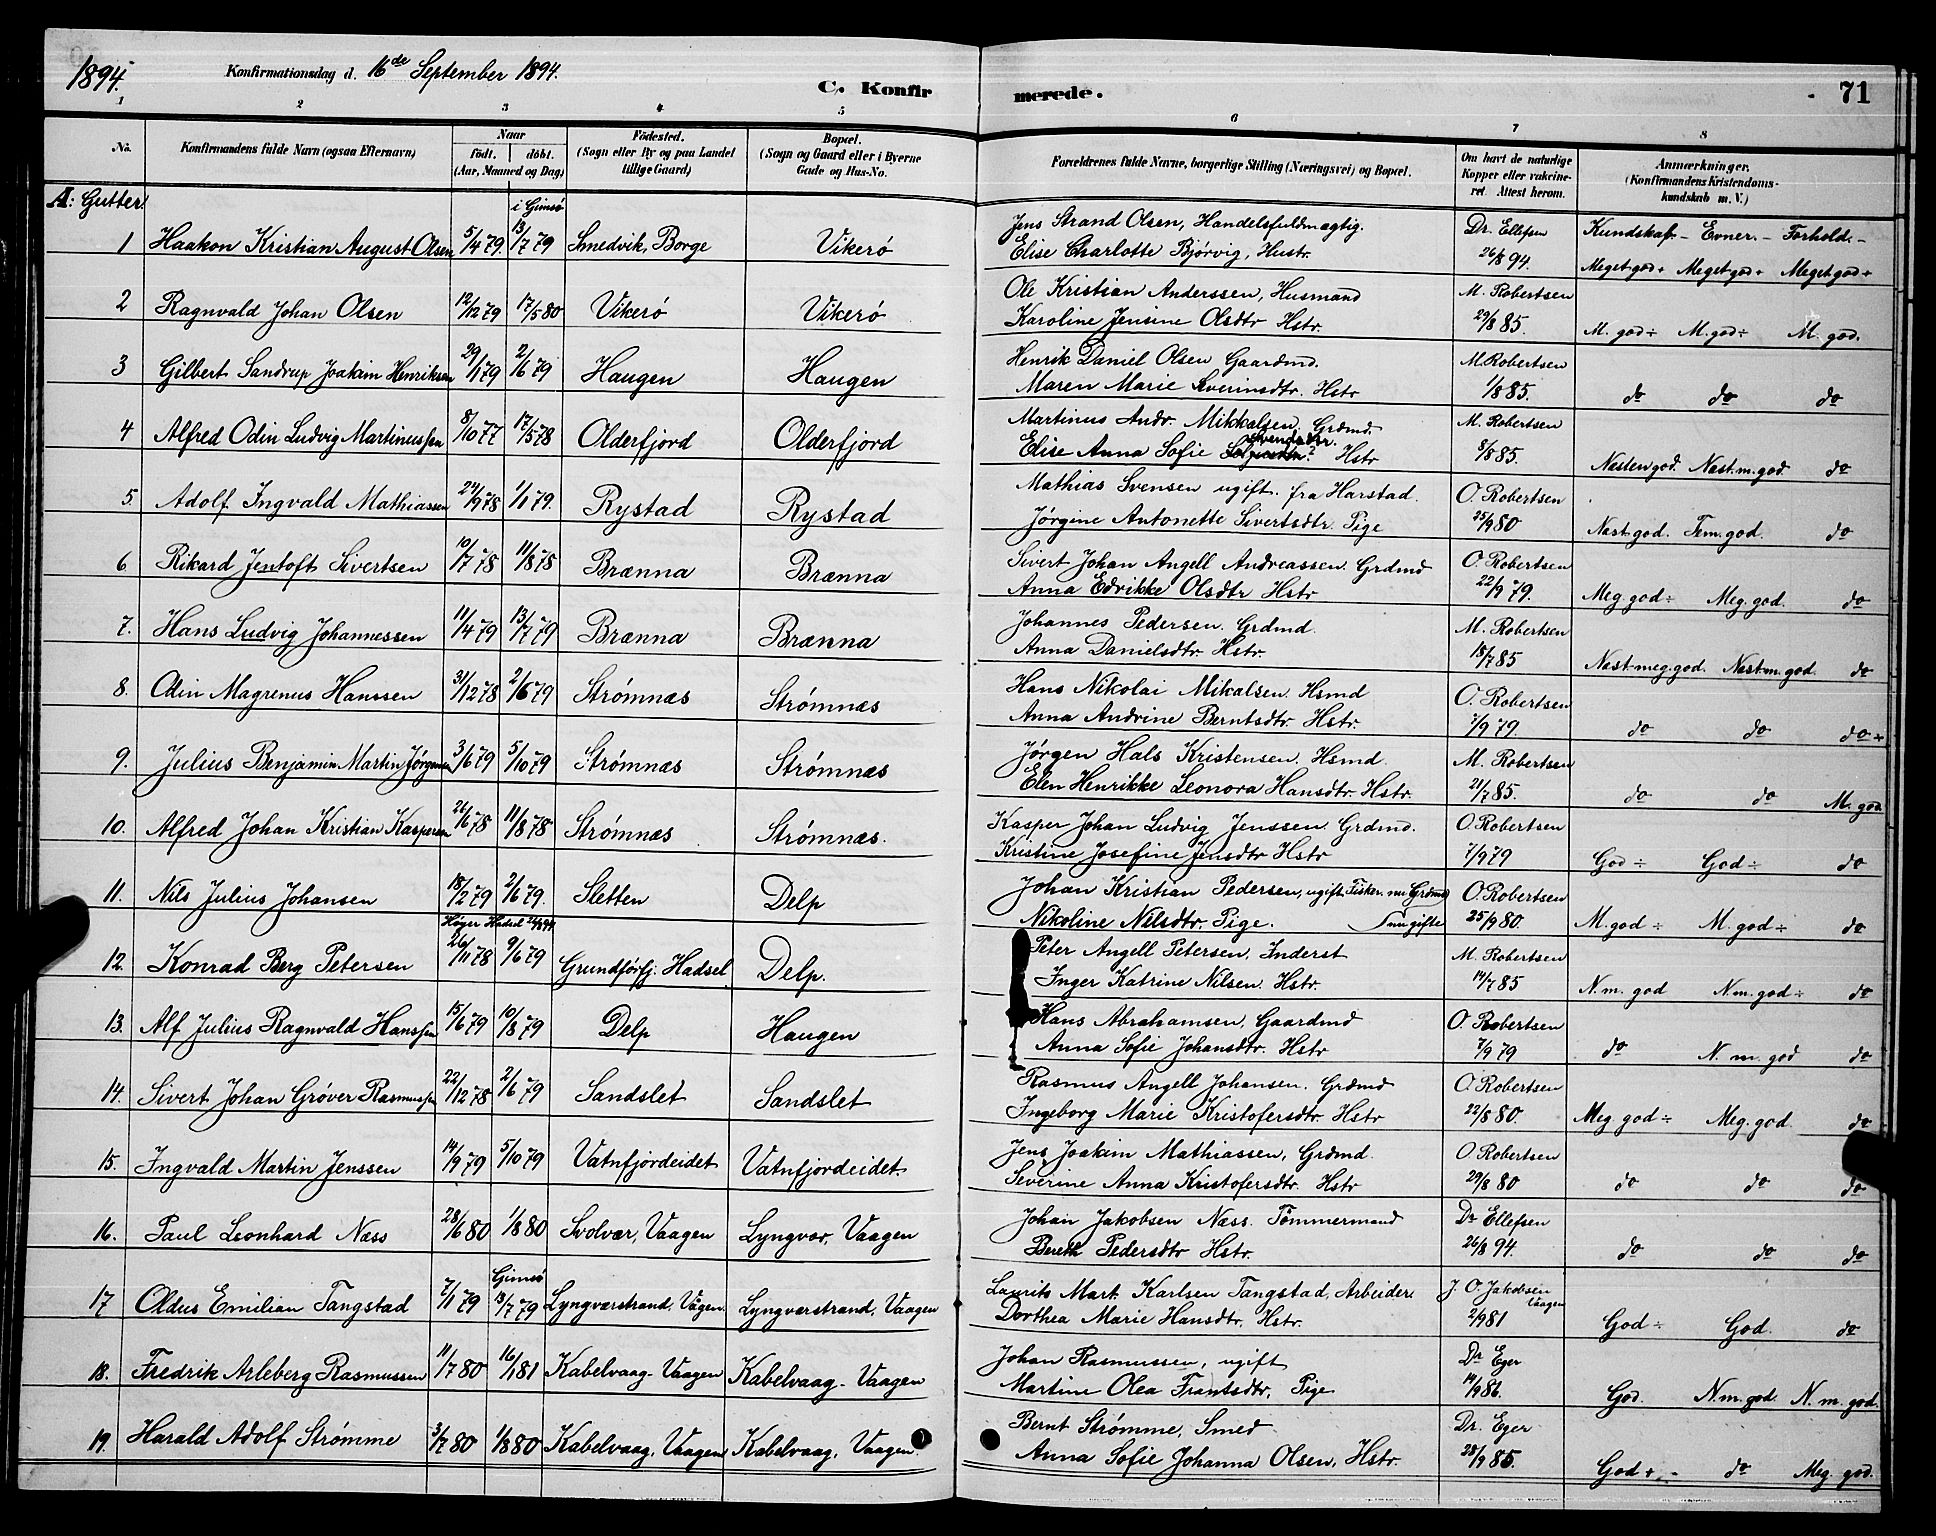 1894. Konfirmationsdag d. 16de September 1894. C. Konfirmerede. 71
1 2 3 4 5 6 7 8
No. Konfirmandens fulde Navn (ogsaa Efternavn) Naar födt. döbt. (Aar, Maaned og Dag) Födested. (Sogn eller By og paa Landet tillige Gaard) Bopæl. (Sogn og Gaard eller i Byerne Gade og Hus-No. Forældrenes fulde Navne, borgerlige Stilling (Næringsvei) og Bopæl. Om havt de naturlige Kopper eller vakcineret. Attest herom. Anmærkninger. (Konfirmandens Kristendomskundskab m. V.)
A: Gutter.
i Gimsø
1 Haakon Kristian August Olsen 5/4 79. 13/7 79 Smedvik, Borge Vikerø Jens Strand Olsen, Handelsfuldmægtig. Dr. Ellefsen Kundskab – Evner. – Forhold. –
Elise Charlotte Bjørvig, Hustr. 26/8 94. Meget god + Meget god + Meget god +
2 Ragnvald Johan Olsen 12/12 79 17/5 80 Vikerø Vikerø Ole Kristian Anderssen, Husmand M. Robertsen
Karoline Jensine Olsdtr Hstr. 29/8 85. M. god ÷ M. god ÷ M. god.
3 Gilbert Sandrup Joakim Henriksen 29/1 79 2/6 79 Haugen Haugen Henrik Daniel Olsen Gaardmd. M. Robertsen
Maren Marie Sverinsdtr. Hstr 1/8 85. do do do
4 Alfred Odin Ludvig Martinussen 8/10 77 17/5 78 Olderfjord Olderfjord Martinus Andr. Mikkalsen, Grdmd. M. Robertsen
Elise Anna Sofie Hstr 8/8 85. Nesten god. Næst. m. god. do
5. Adolf Ingvald Mathiassen 24/9 78 1/1 79. Rystad Rystad Mathias Svensen ugift. fra Harstad. O. Robertsen
Jørgine Antonette Sivertsdtr. Pige 25/9 80 Næst god. Tem. god. do
6 Rikard Jentoft Sivertsen 10/7 78 11/8 78 Brænna Brænna Sivert Johan Angell Andreassen. Grdmd O. Robertsen
Anna Edrikke Olsdtr Hstr 22/9 79. Meg. god ÷ Meg. god. do
7. Hans Ludvig Johannessen 11/4 79 13/7 79 Brænna Brænna Johannes Pedersen. Grdmd. M. Robertsen
Anna Danielsdtr. Hstr. 18/7 85 Næst meg. god. Næst m. god. do
8. Odin Magrenus Hanssen 31/12 78 2/6 79 Strømnæs Strømnæs Hans Nikolai Mikalsen. Hsmd O. Robertsen
Anna Andrine Berntsdtr. Hstr. 7/9 79. do do do +
9. Julius Benjamin Martin Jørgensen 3/6 79 5/10 79 Strømnæs Strømnæs Jørgen Hals Kristensen. Hsmd. M. Robertsen
Elen Henrikke Leonora Hansdtr. Hstr. 21/7 85. do do M. god
10. Alfred Johan Kristian Kaspersen 26/6 78 11/8 78 Strømnæs Strømnæs. Kasper Johan Ludvig Jenssen. Grdmd. O. Robertsen
Kristine Josefine Jensdtr Hstr 7/9 79 God ÷ God ÷ do
11. Nils Julius Johansen 18/2 79 2/6 79. Sletten Delp Johan Kristian Pedersen, ugift. Fisker. nu Grdmd O. Robertsen
Nikoline Nilsdtr. Pige. nu gifte 25/9 80. M. god ÷ M. god ÷ do
12. Konrad Berg Petersen 26/11 78 9/6 79 Grundførfj. Hadsel Delp. Peter Angell Petersen, Inderst M. Robertsen
Inger Katrine Nilsen. Hstr. 14/7 85 N. m. god N. m. god ÷ do
13. Alf Julius Ragnvald Hanssen 15/6 79 10/8 79 Delp Haugen Hans Abrahamsen, Gaardmd O. Robertsen
Anna Sofie Johansdtr. Hstr 7/9 79 do N. m. god do
14. Sivert Johan Grøver Rasmussen 22/12 78 2/6 79 Sandslet Sandslet Rasmus Angell Johansen. Grdmd O. Robertsen
Ingeborg Marie Kristofersdtr. Hstr 22/8 80. Meg. god ÷ Meg. god. do
15. Ingvald Martin Jenssen 14/9 79 5/10 79 Vatnfjordeidet Vatnfjordeidet. Jens Joakim Mathiassen, Grdmd. O Robertsen
Severine Anna Kristofersdtr. Hstr 29/8 80 do do do
16. Paul Leonhard Næss 28/6 80 1/8 80 Svolvær, Vaagen Lyngvær, Vaagen Johan Jakobsen Næss. Tømmermand Dr Ellefsen
Bereth Pedersdtr Hstr. 26/8 94. do do do
Gimsø
17 Oldus Emilian Tangstad 7/1 79 13/7 79 Lyngværstrand, Vågen Lyngværstrand, Vaagen Laurits Mart. Karlsen Tangstad, Arbeider J. O. Jakobsen Vaagen
Dorthea Marie Hansdtr. Hstr. 2/9 81 God ÷ God. do
18. Fredrik Arleberg Rasmussen 11/7 80 16/1 81 Kabelvaag – Vaagen Kabelvaag – Vaagen Johan Rasmussen, ugift Dr Eger
Martine Olea Frantsdtr, Pige 14/9 86. God. N. m. god. N. m. god.
19. Harald Adolf Strømme 3/7 80 1/8 80 Kabelvaag, Vaagen Kabelvaag, Vaagen Bernt Strømme, Smed Dr. Eger
Anna Sofie Johanna Olsen, Hstr. 28/9 85. God + do Meg. god.